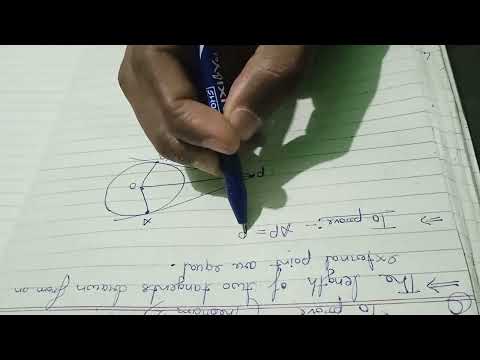 To prove
⇒ The length of two tangents drawn from an
external point are equal.
⇒ To prove :- AP =
A
O
P